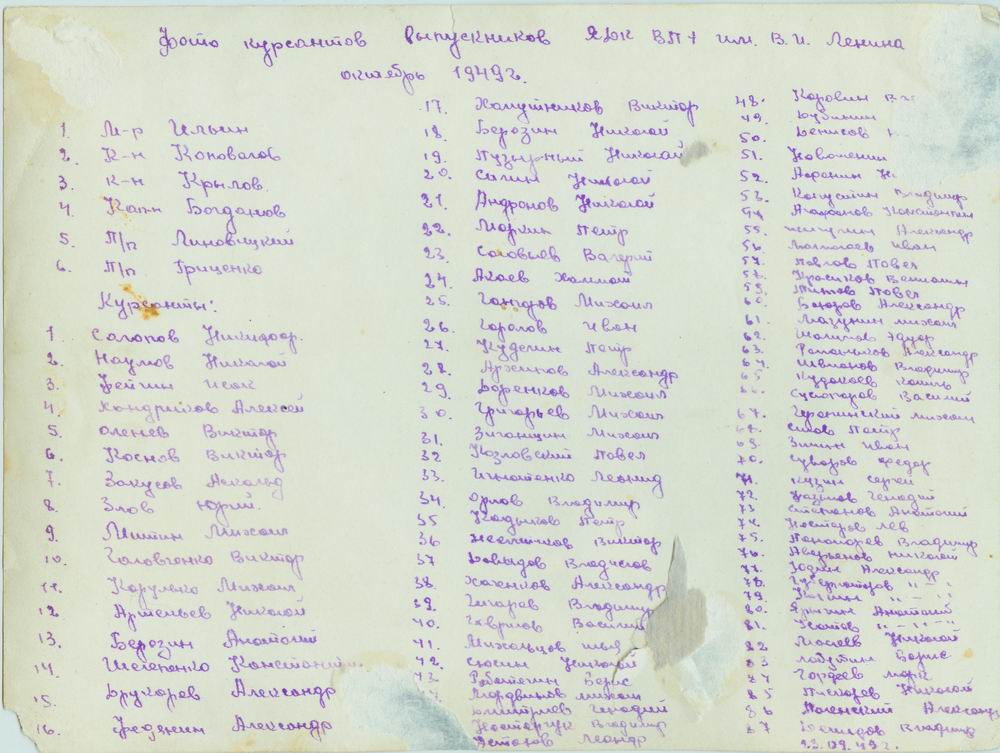 Фото курсантов выпускников ЯКК ВПУ им. В. И. Ленина
октябрь 1949г.
1. М-р Ильин
2. К-н Коновалов
3. К-н Крылов.
4. Кап-н Богданов
5. П/п Линовицкий
6. П/п Гриценко
Курсанты:
1 Солопов Никифор.
2. Наумов Николай
3. Фейгин Исак
4. Кондриков Алексей
5. Оленев Виктор
6. Коснов Виктор
7. Закусов Аскольд
8. Злов Юрий.
9. Митин Михаил
10. Головченко Виктор
11. Корулько Михаил
12 Артемьев Николай
13. Березин Анатолий
14. Шелепенко Константин
15. Друкарев Александр
16. Феденин Александр
17. Халутников Виктор
18. Березин Николай
19. Пузырный Николай
20. Сигин Николай
21. Андронов Николай
22. Маркин Петр
23. Соловьев Валерий
24. Акаев
25. Михаил
26. Горолов Иван
27. Куделин Петр
28. Архипов Александр
29. Воренков Михаил
30. Григорьев Михаил
31. Зиганшин Михаил
32 Козловский Павел
33. Игнатенко Леонид
34. Орлов Владимир
35 Кадыков Петр
36 Виктор
37 Давыдов Владислав
38. Хаченков Александр
39. Гигарев Владимир
40. Гаврилов Василий
41. Михальцов
42. Сюсин Николай
43. Работягин Борис
Мордвинов Михаил
Дмитриев Геннадий
Костерчук Владимир
Астахов Леонар
48. Коровин
49. Дубинин
50. Денисов
51.
52. Афонин
53. Капустин Владимир
54. Агафонов Константин
55. Александр
56. Иван
57. Павлов Павел
57. Красиков Вениамин
59. Титов Павел
60. Бындов Александр
61. Мазунин Михаил
62. Шарипов Эдуар
63. Ратников Александр
64. Шешуков Владимир
65. Кудакаев Камиль
Сухопаров Василий
67. Черапинский Михаил
68. Сизов Петр
69. Зимин Иван
70. Суворов Федор
71. Кузин Сергей
72. Назимов Геннадий
73 Степанов Анатолий
74. Нестеров Лев
75. Пономарев Владимир
76. Аверьянов Николай
77. Юдин Александр
78. Губернаторов " - "
79.
80. Яркин Анатолий
81. Усатов " - " - "
82 Мосеев Николай
83 Лобутин Борис
84 Гордеев Марк
85 Пискарев Николай
86 Маленский Александр
87 Давыдов Владимир
23.09.49г.